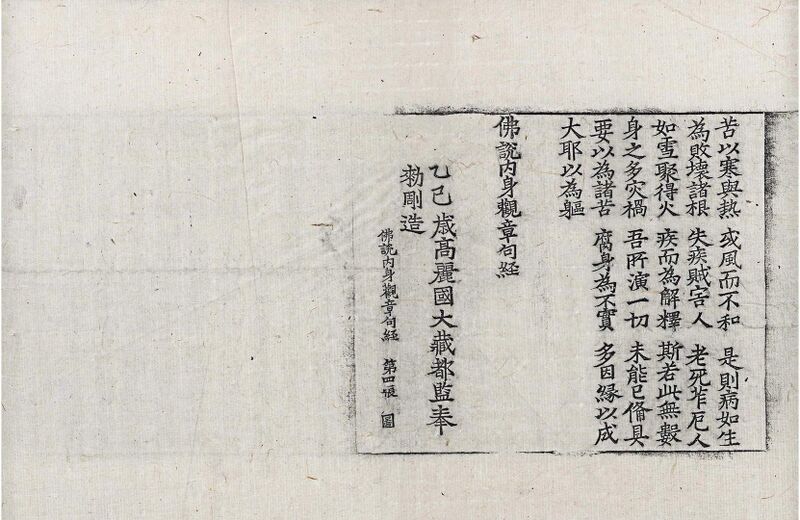 苦以寒與熱 或風而不和 是則病如生
為敗壞諸根 失疾賊害人 老死苲厄人
如雪聚得火 疾而為解釋 斯若此無數
身之多灾禍 吾所演一切 未能已俻具
要以為諸苦 腐身為不實 多因緣以成
大耶以為軀
佛說內身觀章句經
乙巳歲高麗國大藏都監奉
勑彫造
佛說內身觀章句經 第四張 圖